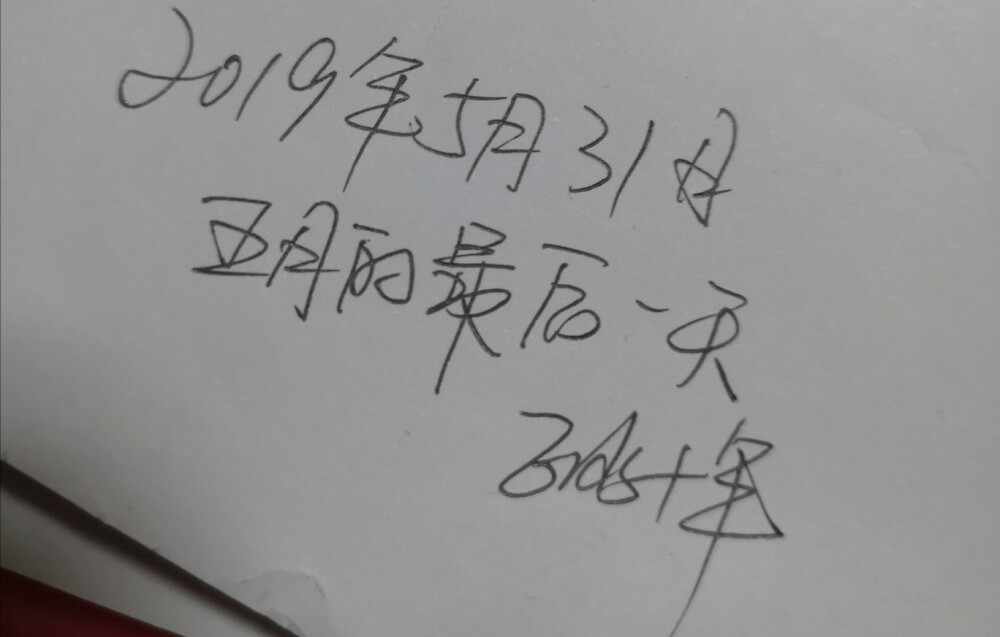 2019年5月31日
五月的最后一天
十年